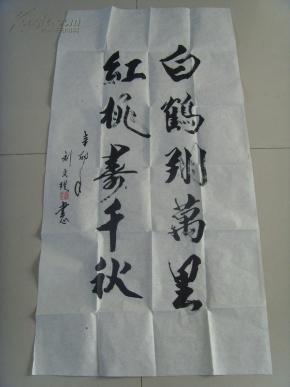 白鶴翔萬里
紅桃壽千秋
辛卯年
書